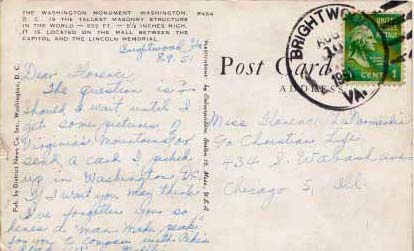 THE WASHINGTON MONUMENT WASHINGTON,
D. C. IS THE TALLEST MASONRY STRUCTURE
IN THE WORLD — 555 FT. — 5⅛ INCHES HIGH.
IT IS LOCATED ON THE MALL BETWEEN THE
CAPITOL AND THE LINCOLN MEMORIAL
P464
Brightwood, Va
8-9-51
Dear Florence
The question is :-
Should I wait until I
get some pictures of
Virginia's Mountains or
send a card I picked
up in Washington D.C.
If I wait you may think
I've forgotten you so
hence a "Man Made peak"
for you to compare with Pike's
Pub. by District News Co. Inc., Washington, D. C.
Post Card
ADDRESS
BRIGHTWOOD
AUG
10
VA.
1 CENT 1
Miss Florence
c/o Christian Life
434 S. Wabash ave
Chicago 5, Ill.